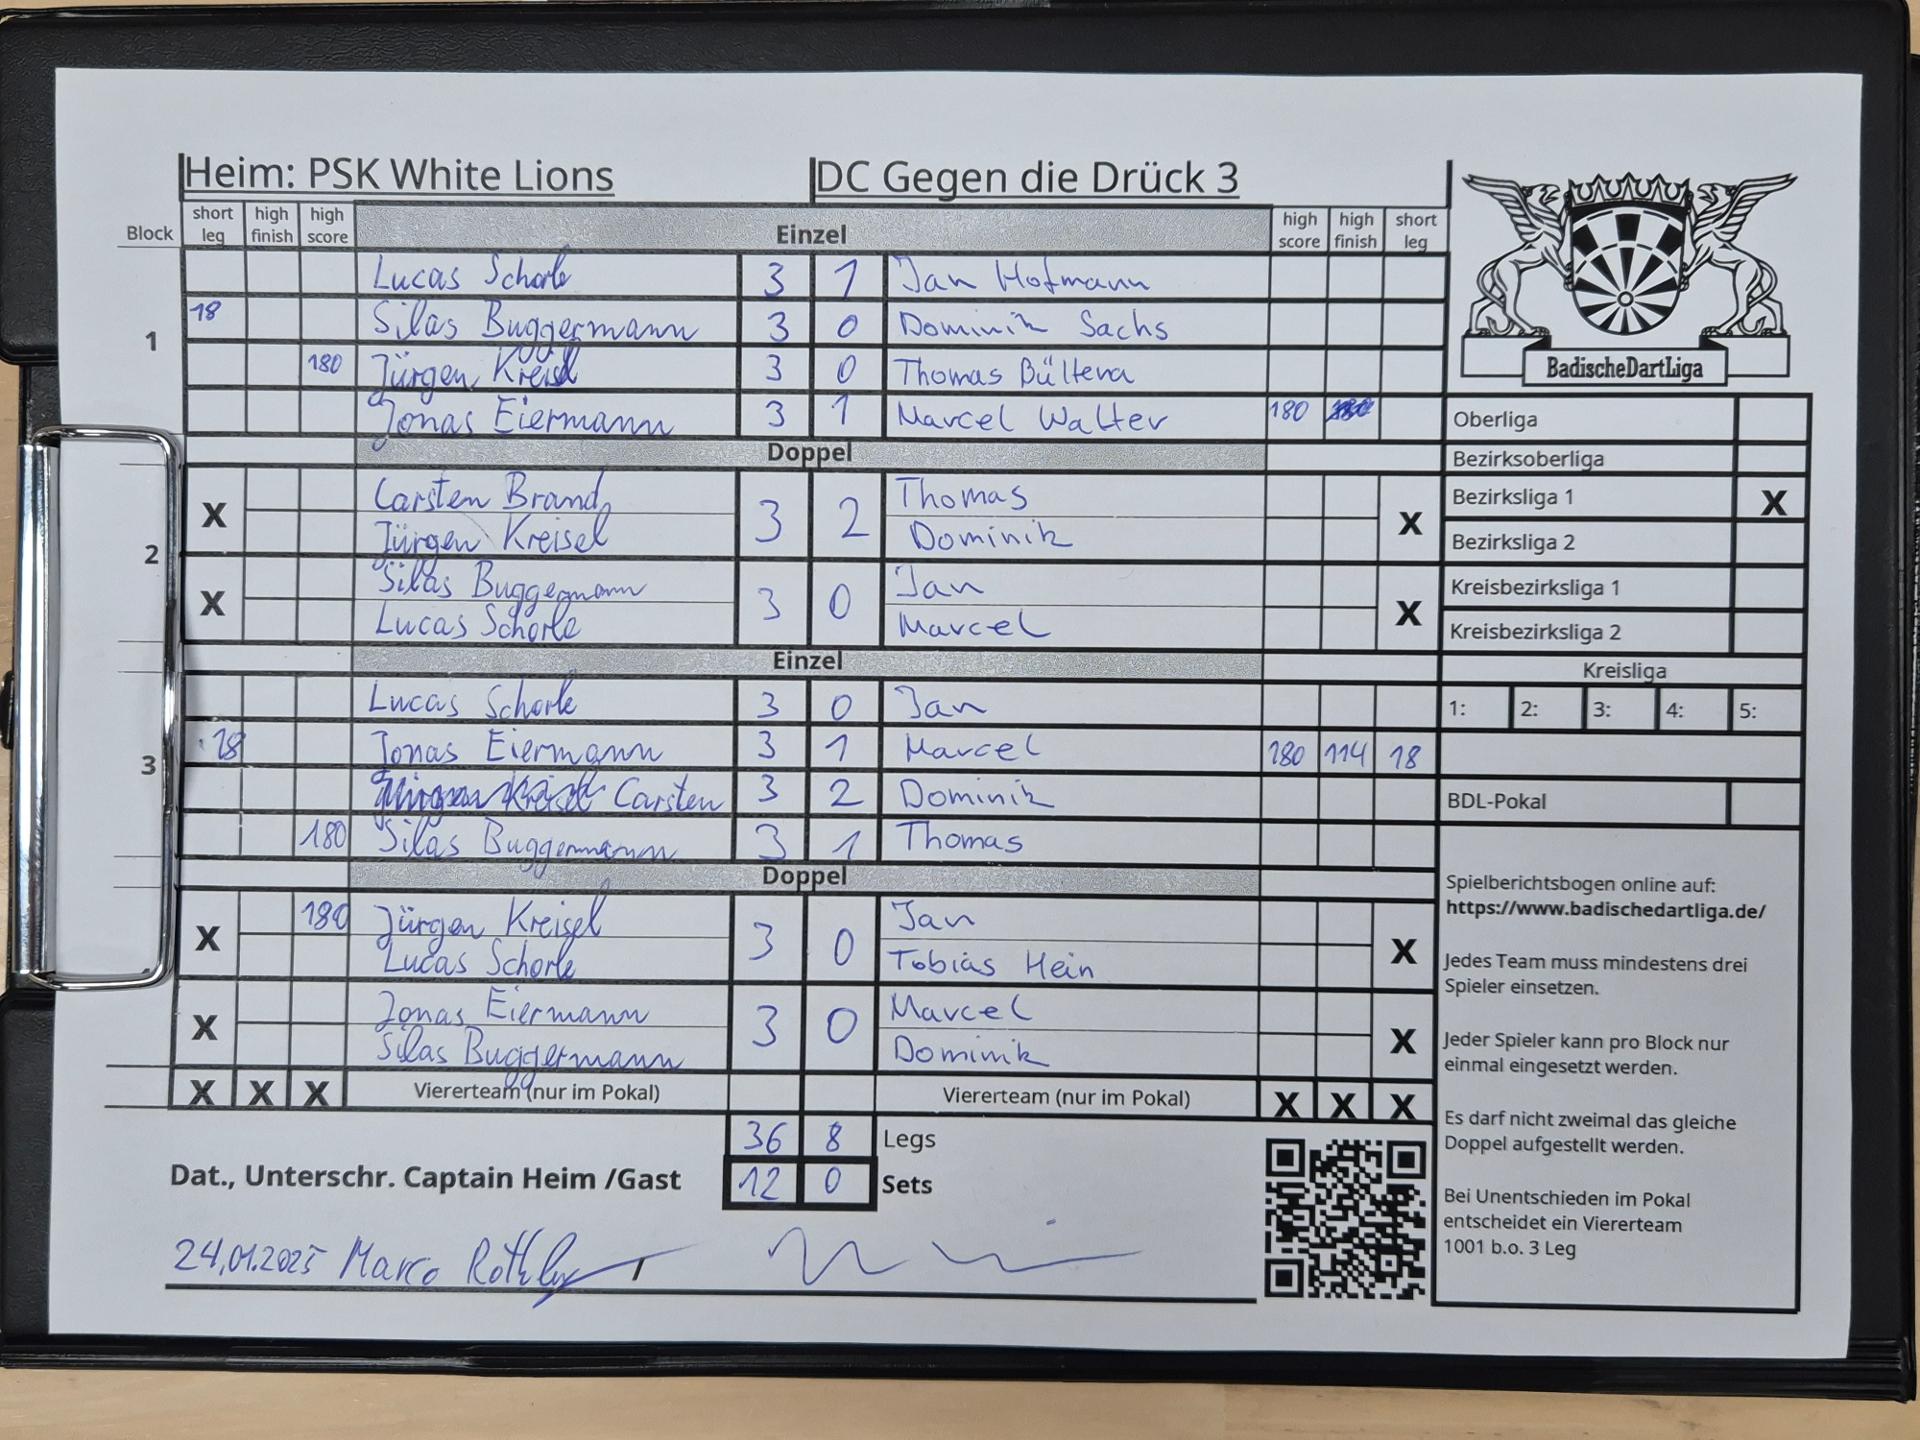 Heim: PSK White Lions DC Gegen die Drück 3
Block short leg high finish high score Einzel high score high finish short leg
1
Lucas Schorle 3 1 Jan Hofmann
18 Silas Buggermann 3 0 Dominik Sachs
180 Jürgen Kreisel 3 0 Thomas Bültena
Jonas Eiermann 3 1 Marcel Walter 180
Doppel
2
X Carsten Brand 3 2 Thomas X
Jürgen Kreisel Dominik
X Silas Buggermann 3 0 Jan X
Lucas Schorle Marcel
Einzel
3
Lucas Schorle 3 0 Jan
18 Jonas Eiermann 3 1 Marcel 180 114 18
Carsten 3 2 Dominik
180 Silas Buggermann 3 1 Thomas
Doppel
X 180 Jürgen Kreisel 3 0 Jan X
Lucas Schorle Tobias Hein
X Jonas Eiermann 3 0 Marcel X
Silas Buggermann Dominik
X X X Viererteam (nur im Pokal) Viererteam (nur im Pokal) X X X
36 8 Legs
12 0 Sets
Dat., Unterschr. Captain Heim /Gast
24.01.2025 Marco
BadischeDartLiga
Oberliga
Bezirksoberliga
Bezirksliga 1 X
Bezirksliga 2
Kreisbezirksliga 1
Kreisbezirksliga 2
Kreisliga
1: 2: 3: 4: 5:
BDL-Pokal
Spielberichtsbogen online auf:
https://www.badischedartliga.de/
Jedes Team muss mindestens drei
Spieler einsetzen.
Jeder Spieler kann pro Block nur
einmal eingesetzt werden.
Es darf nicht zweimal das gleiche
Doppel aufgestellt werden.
Bei Unentschieden im Pokal
entscheidet ein Viererteam
1001 b.o. 3 Leg